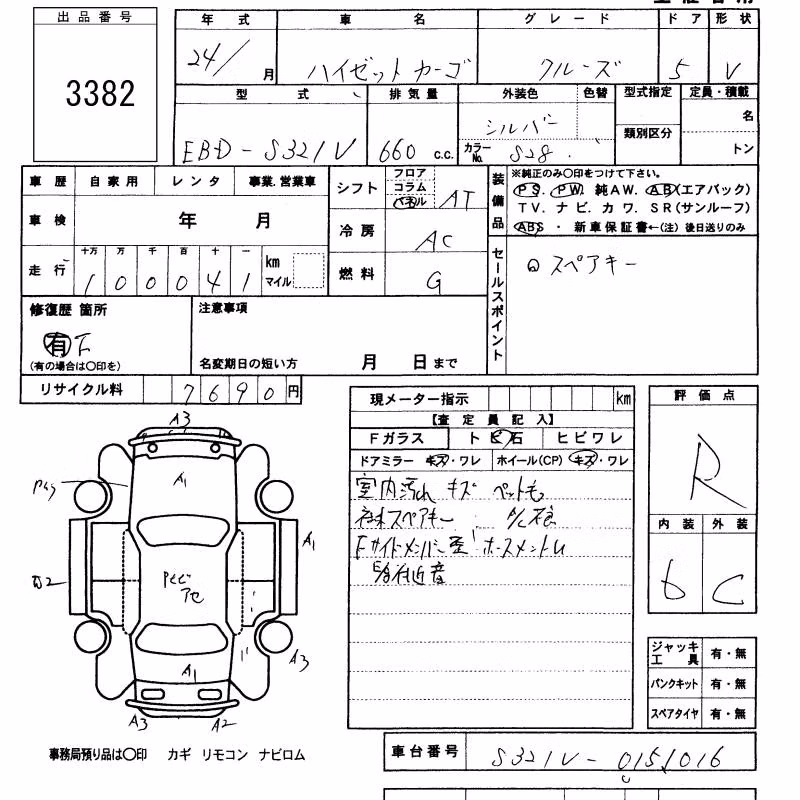 出品番号
3382
年式 車名 グレード ドア 形状
24/ 月 ハイゼットカーゴ クルーズ 5 V
型式 排気量 外装色 色替 型式指定 定員・積載
EBD-S321V 660 c.c. シルバー 類別区分 名
カラーNo. S28 トン
車歴 自家用 レンタ 事業.営業車
シフト フロア コラム パネル AT
装備品 ※純正のみ○印をつけて下さい。
PS. PW. 純AW. AB(エアバック)
TV. ナビ. カワ. SR(サンルーフ)
ABS ・ 新車保証書←(注) 後日送りのみ
車検 年 月
冷房 AC
走行 十万 万 千 百 十 一
1 0 0 0 4 1 km マイル
燃料 G
セールスポイント
スペアキー
修復歴 箇所
有
(有の場合は○印を)
注意事項
名変期日の短い方 月 日まで
リサイクル料 7690円
現メーター指示 km
【査定員記入】
Fガラス トビ石 ヒビワレ
ドアミラー キズ・ワレ ホイール(CP) キズ・ワレ
室内汚れ キズ ペットモ
スペアキー
Fサイドメンバー
評価点
R
内装 外装
6 C
A3
A1
A1
B2
A3
A1
A3 A2
ジャッキ工具 有・無
パンクキット 有・無
スペアタイヤ 有・無
事務局預り品は○印 カギ リモコン ナビロム
車台番号 S321V-0151016